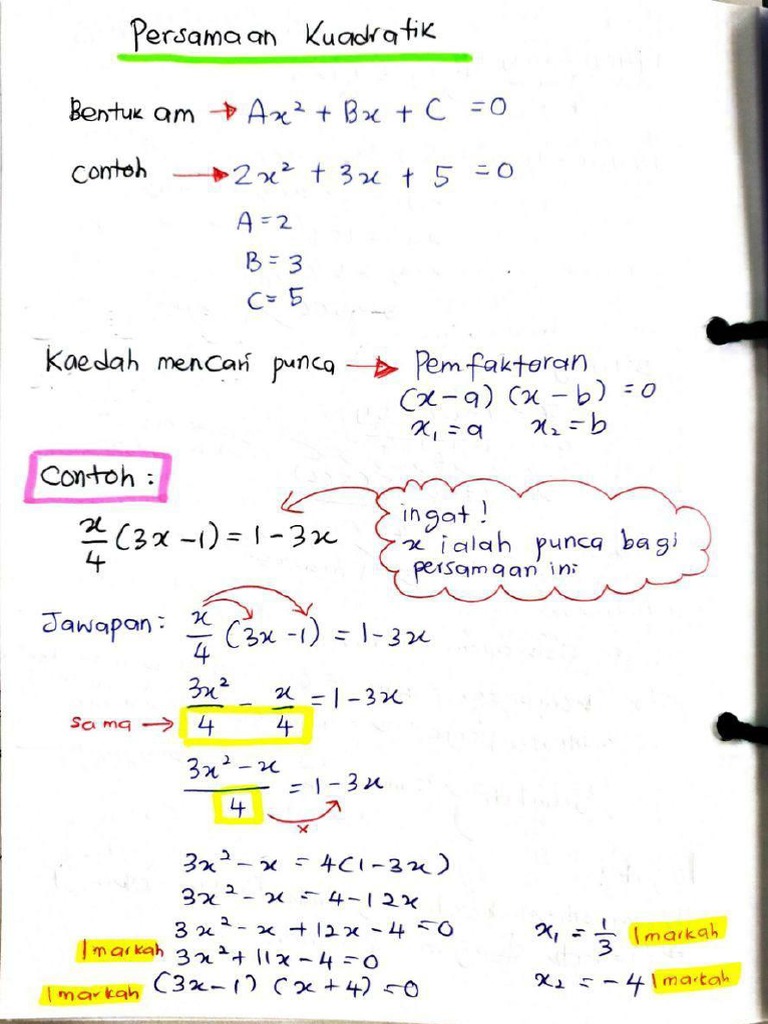 Persamaan Kuadratik
Bentuk am → Ax² + Bx + C = 0
Contoh → 2x² + 3x + 5 = 0
A = 2
B = 3
C = 5
Kaedah mencari punca → Pemfaktoran
(x-a) (x-b) = 0
x₁ = a x₂ = b
Contoh :
x/4 (3x-1) = 1-3x
ingat!
x ialah punca bagi
persamaan ini
Jawapan: x/4 (3x-1) = 1-3x
3x²/4 - x/4 = 1-3x
sama →
(3x²-x)/4 = 1-3x
x
3x²-x = 4(1-3x)
3x²-x = 4-12x
3x²-x+12x-4=0
1 markah 3x²+11x-4=0
1 markah (3x-1) (x+4)=0
x₁ = 1/3 1 markah
x₂ = -4 1 markah